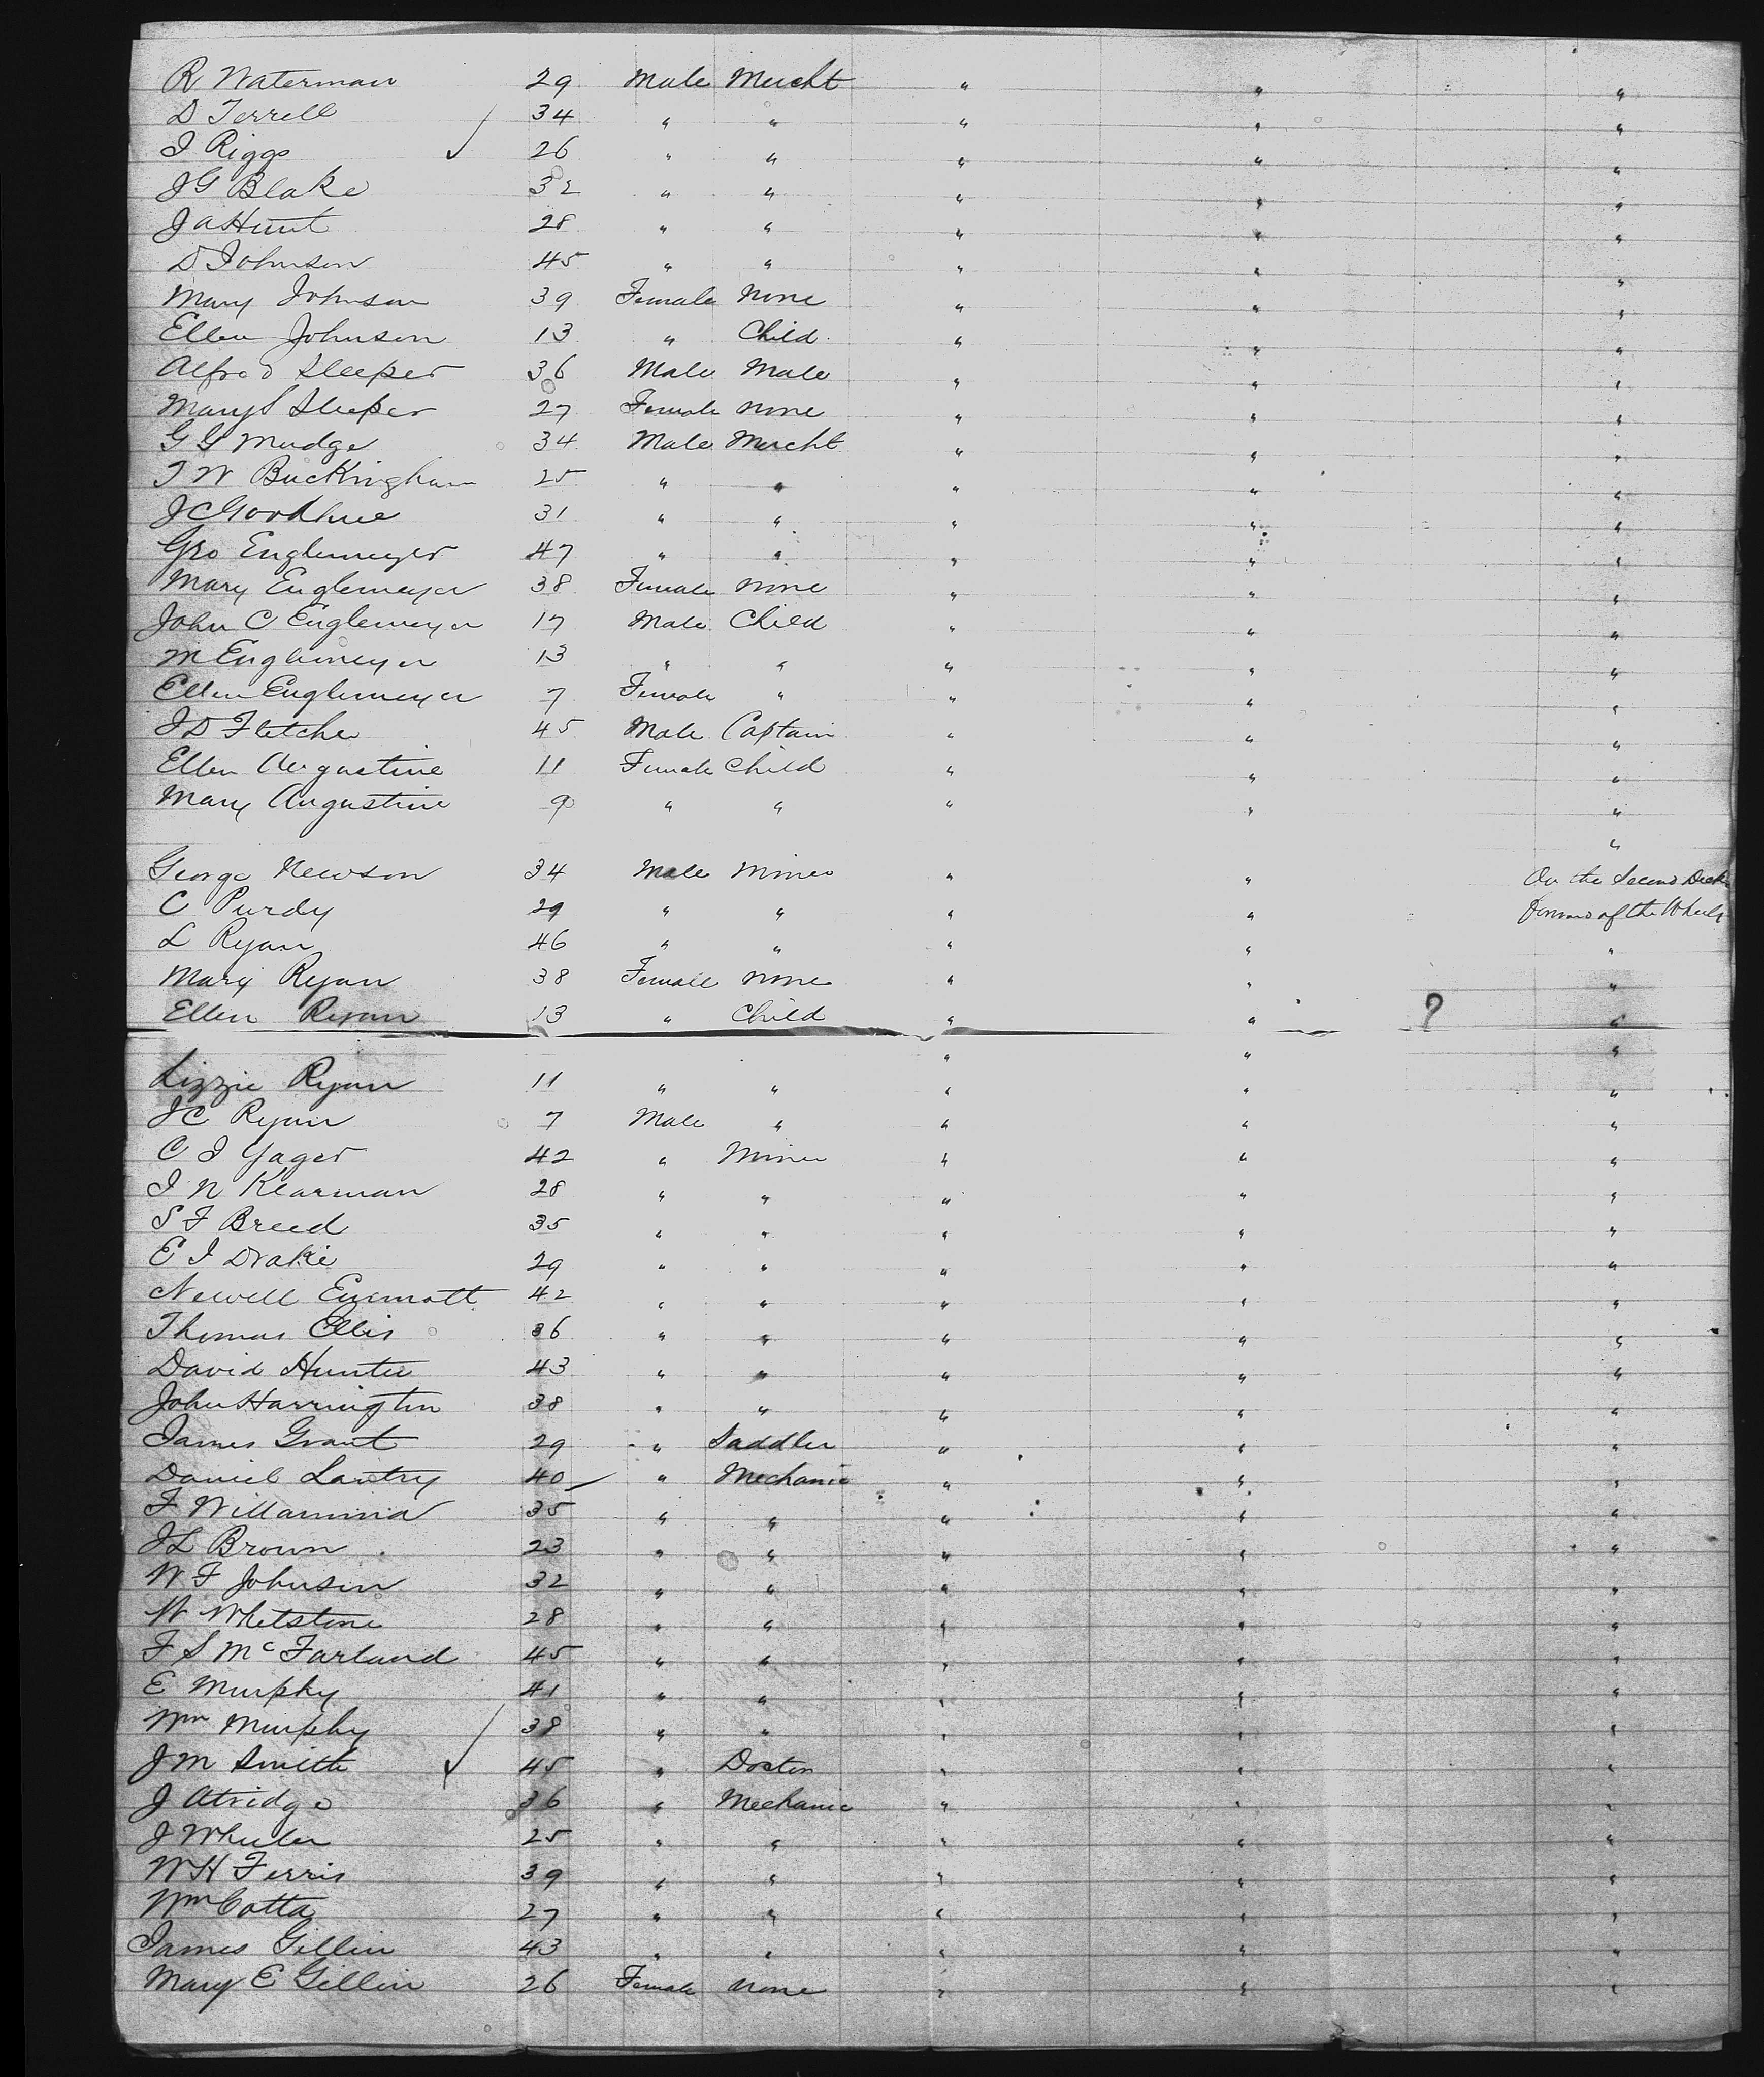 R Waterman 29 Male Mercht " " "
D Terrell 34 " " " " "
I Riggs 26 " " " " "
J G Blake 32 " " " " "
J A Hunt 28 " " " " "
D Johnson 45 " " " " "
Mary Johnson 39 Female None " " "
Ellen Johnson 13 " Child " " "
Alfred Sleeper 36 Male Male " " "
Mary S Sleeper 27 Female None " " "
G G Mudge 34 Male Mercht " " "
T W Buckingham 25 " " " " "
J C Goodhue 31 " " " " "
Geo Englemeyer 47 " " " " "
Mary Englemeyer 38 Female None " " "
John C Englemeyer 17 Male Child " " "
M Englemeyer 13 " " " " "
Ellen Englemeyer 7 Female " " " "
J D Fletcher 45 Male Captain " " "
Ellen Augustine 11 Female Child " " "
Mary Augustine 9 " " " " "
"
George Newson 34 Male Miner " " On the Second Deck
C Purdy 29 " " " " Forward of the Wheels
L Ryan 46 " " " " "
Mary Ryan 38 Female None " " "
Ellen Ryan 13 " Child " " ? "
" " "
Lizzie Ryan 11 " " " " "
J C Ryan 7 Male " " " "
C I Yager 42 " Miner " " "
I N Klarman 28 " " " " "
S F Breed 35 " " " " "
E I Drake 29 " " " " "
Newell 42 " " " " "
Thomas Ellis 36 " " " " "
David Hunter 43 " " " " "
John Harrington 38 " " " " "
James Grant 29 " Saddler " " "
Daniel Lantry 40 " Mechanic " " "
F 35 " " " " "
J L Brown 23 " " " " "
W F Johnson 32 " " " " "
W Whetstone 28 " " " " "
F S McFarland 45 " " " " "
E Murphy 41 " " " " "
Wm Murphy 38 " " " " "
J M Smith 45 " Doctor " " "
J Atridge 36 " Mechanic " " "
J Wheeler 25 " " " " "
W H Ferris 39 " " " " "
Wm Cotta 27 " " " " "
James Gillin 43 " " " " "
Mary E Gillin 26 Female None " " "